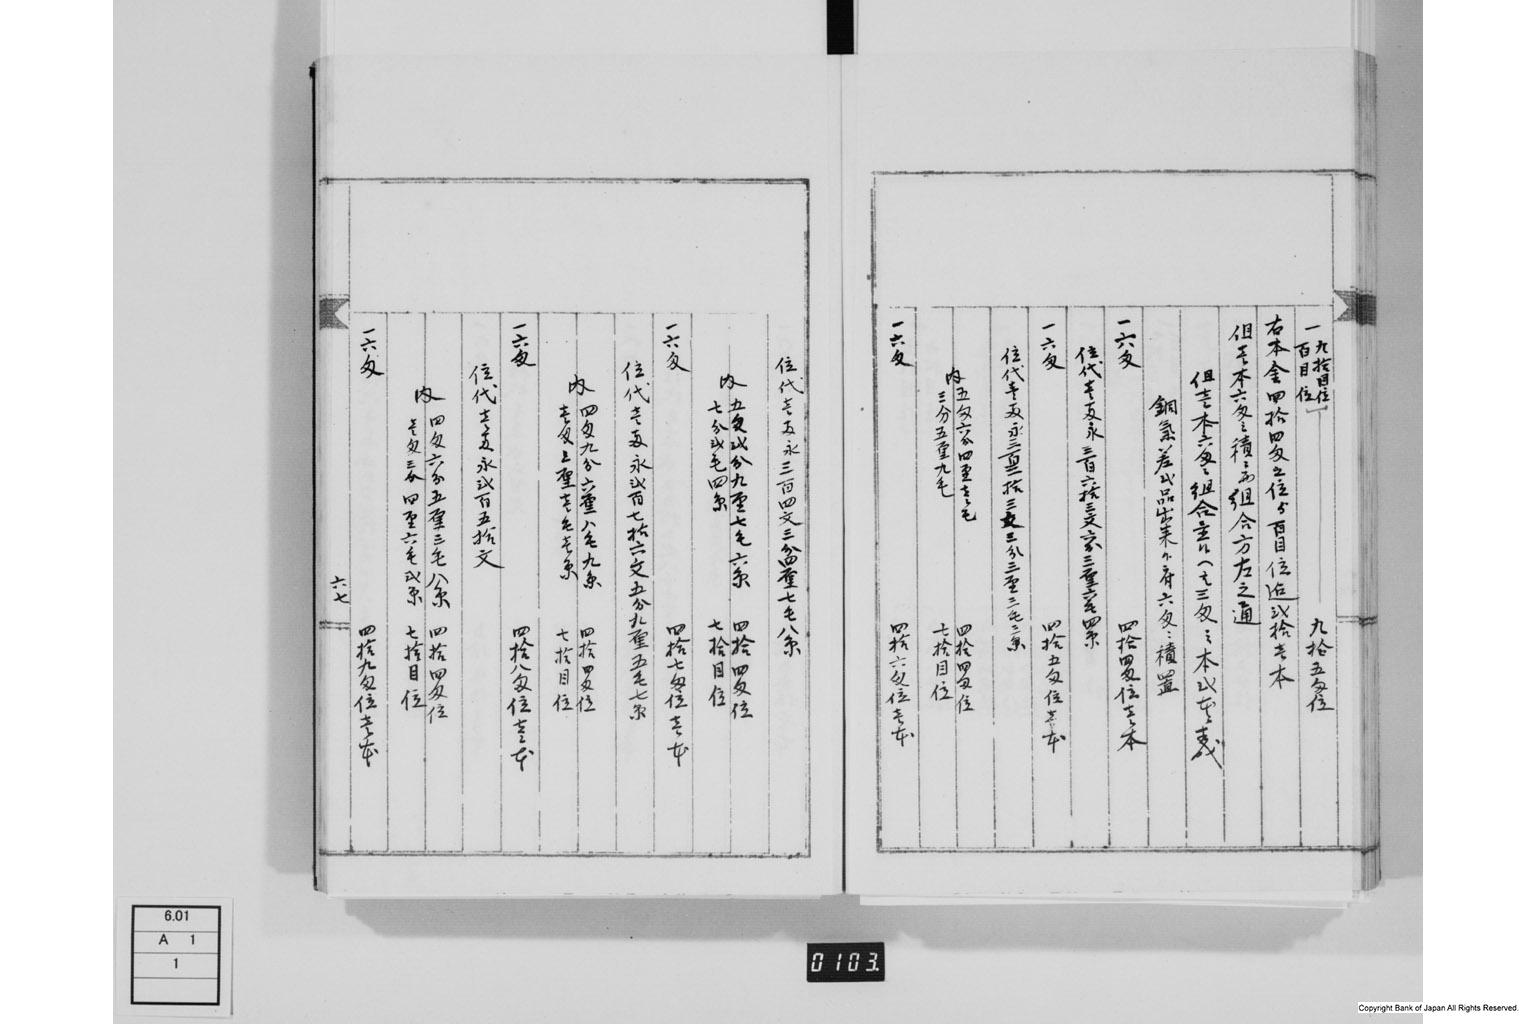 一九拾目位
百目位
九拾五匁位
右本金四拾四匁位ゟ百目位迄弐拾壱本
但壱本六匁之積ニ而組合方左之通
但壱本六匁ニ組合
銅気差弐品出来 六匁ニ積置
一六匁
四拾四匁位壱本
位代壱両永三百六拾三文
一六匁
四拾五匁位壱本
位代壱両永三百三拾三文三分三厘三毛三糸
内
五匁六分四厘壱毛
四拾四匁位
三分五厘九毛
七拾目位
一六匁
四拾六匁位壱本
位代壱両永三百四文三分四厘七毛八糸
内
五匁弐分九厘七毛六糸
四拾四匁位
七分弐毛四糸
七拾目位
一六匁
四拾七匁位壱本
位代壱両永弐百七拾六文五分九厘五毛七糸
内
四匁九分六厘八毛九糸
四拾四匁位
壱匁三厘壱毛壱糸
七拾目位
一六匁
四拾八匁位壱本
位代壱両永弐百五拾文
内
四匁六分五厘三毛八糸
四拾四匁位
壱匁三分四厘六毛弐糸
七拾目位
一六匁
四拾九匁位壱本
六七
6.01
A 1
1
0103.
Copyright Bank of Japan All Rights Reserved.